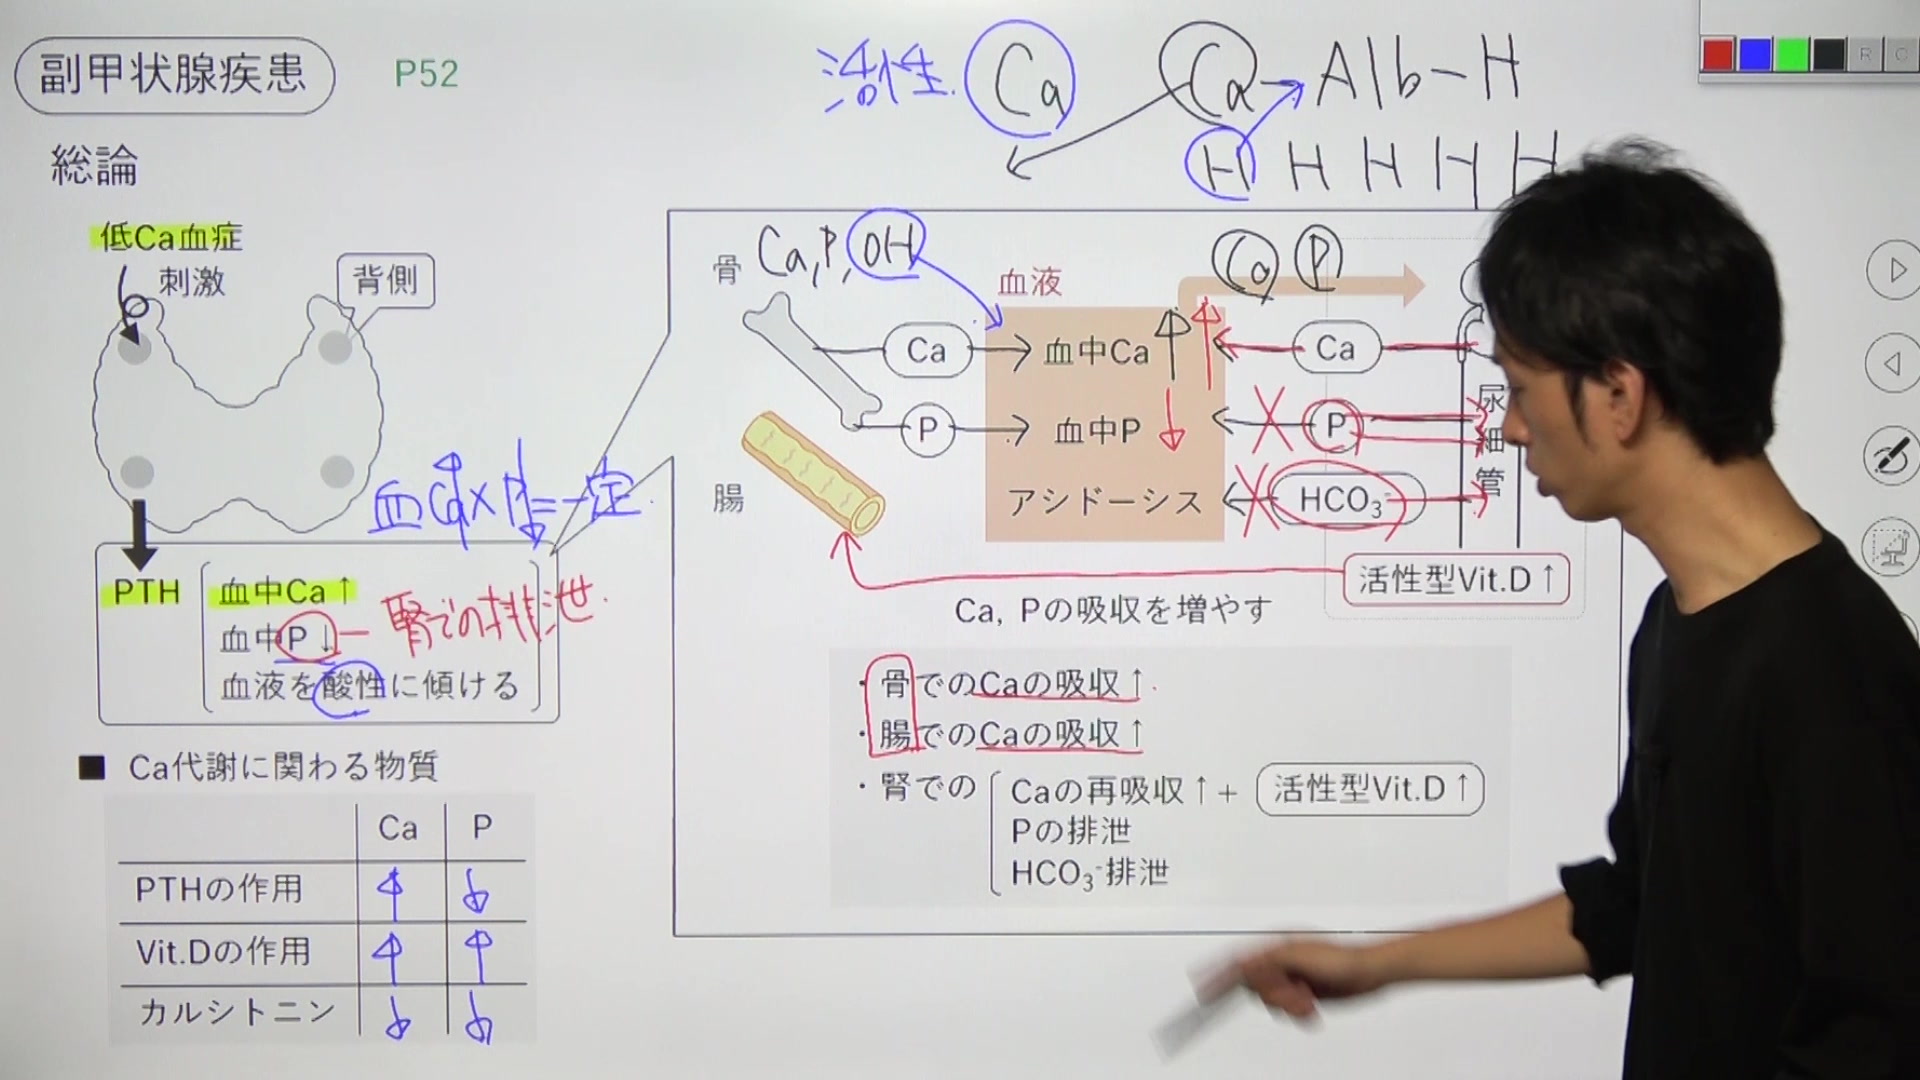 副甲状腺疾患 P52
活性 Ca Ca Alb-H
H H H H H
総論
低Ca血症
刺激
背側
骨 Ca, P, OH
血液
Ca P
Ca 血中Ca Ca
P 血中P P
腸 アシドーシス HCO₃⁻
尿細管
活性型Vit.D↑
Ca, Pの吸収を増やす
血Ca×P=一定
PTH 血中Ca↑
血中P↓ 腎での排泄
血液を酸性に傾ける
・骨でのCaの吸収↑
・腸でのCaの吸収↑
・腎での Caの再吸収↑+ 活性型Vit.D↑
Pの排泄
HCO₃⁻排泄
■ Ca代謝に関わる物質
Ca P
PTHの作用 ↑ ↓
Vit.Dの作用 ↑ ↑
カルシトニン ↓ ↓
R C